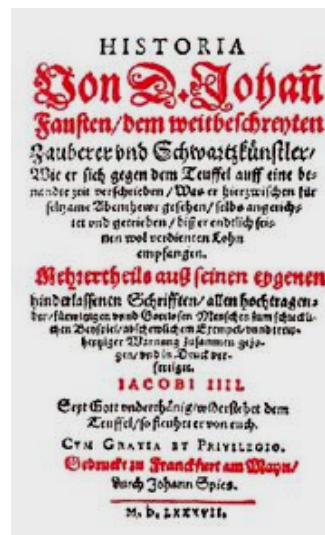 HISTORIA
Von D. Johañ
Fausten/ dem weitbeschreyten
Zauberer vnd Schwartzkünstler/
Wie er sich gegen dem Teuffel auff eine be-
nandte zeit verschrieben/ Was er hierzwischen für
seltzame Abenthewr gesehen/ selbs angerich-
tet vnd getrieben/ biß er endtlich sei-
nen wol verdienten Lohn
empfangen.
Mehrertheils auß seinen eygenen
hinderlassenen Schrifften/ allen hochtragen-
den/ fürwitzigen vnnd Gottlosen Menschen zum schreckli-
chen Beyspiel/ abschewlichem Exempel/ vnnd trew-
hertziger Warnung zusammen gezo-
gen/ vnd in Druck ver-
fertiget.
IACOBI IIII.
Seyt Gott vnderthänig/ widerstehet dem
Teuffel/ so fleuhet er von euch.
CVM GRATIA ET PRIVILEGIO.
Gedruckt zu Franckfurt am Mayn/
durch Johann Spies.
M. D. LXXXVII.